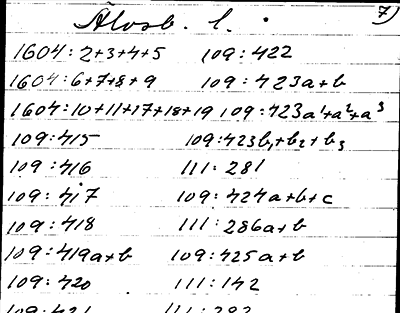 7)
Älvsb. l.
1604:2+3+4+5 109:422
1604:6+7+8+9 109:423a+b
1604:10+11+17+18+19 109:423a¹+a²+a³
109:415 109:423b₁+b₂+b₃
109:416 111:281
109:417 109:424a+b+c
109:418 111:286a+b
109:419a+b 109:425a+b
109:420 111:142
109:421 111:282